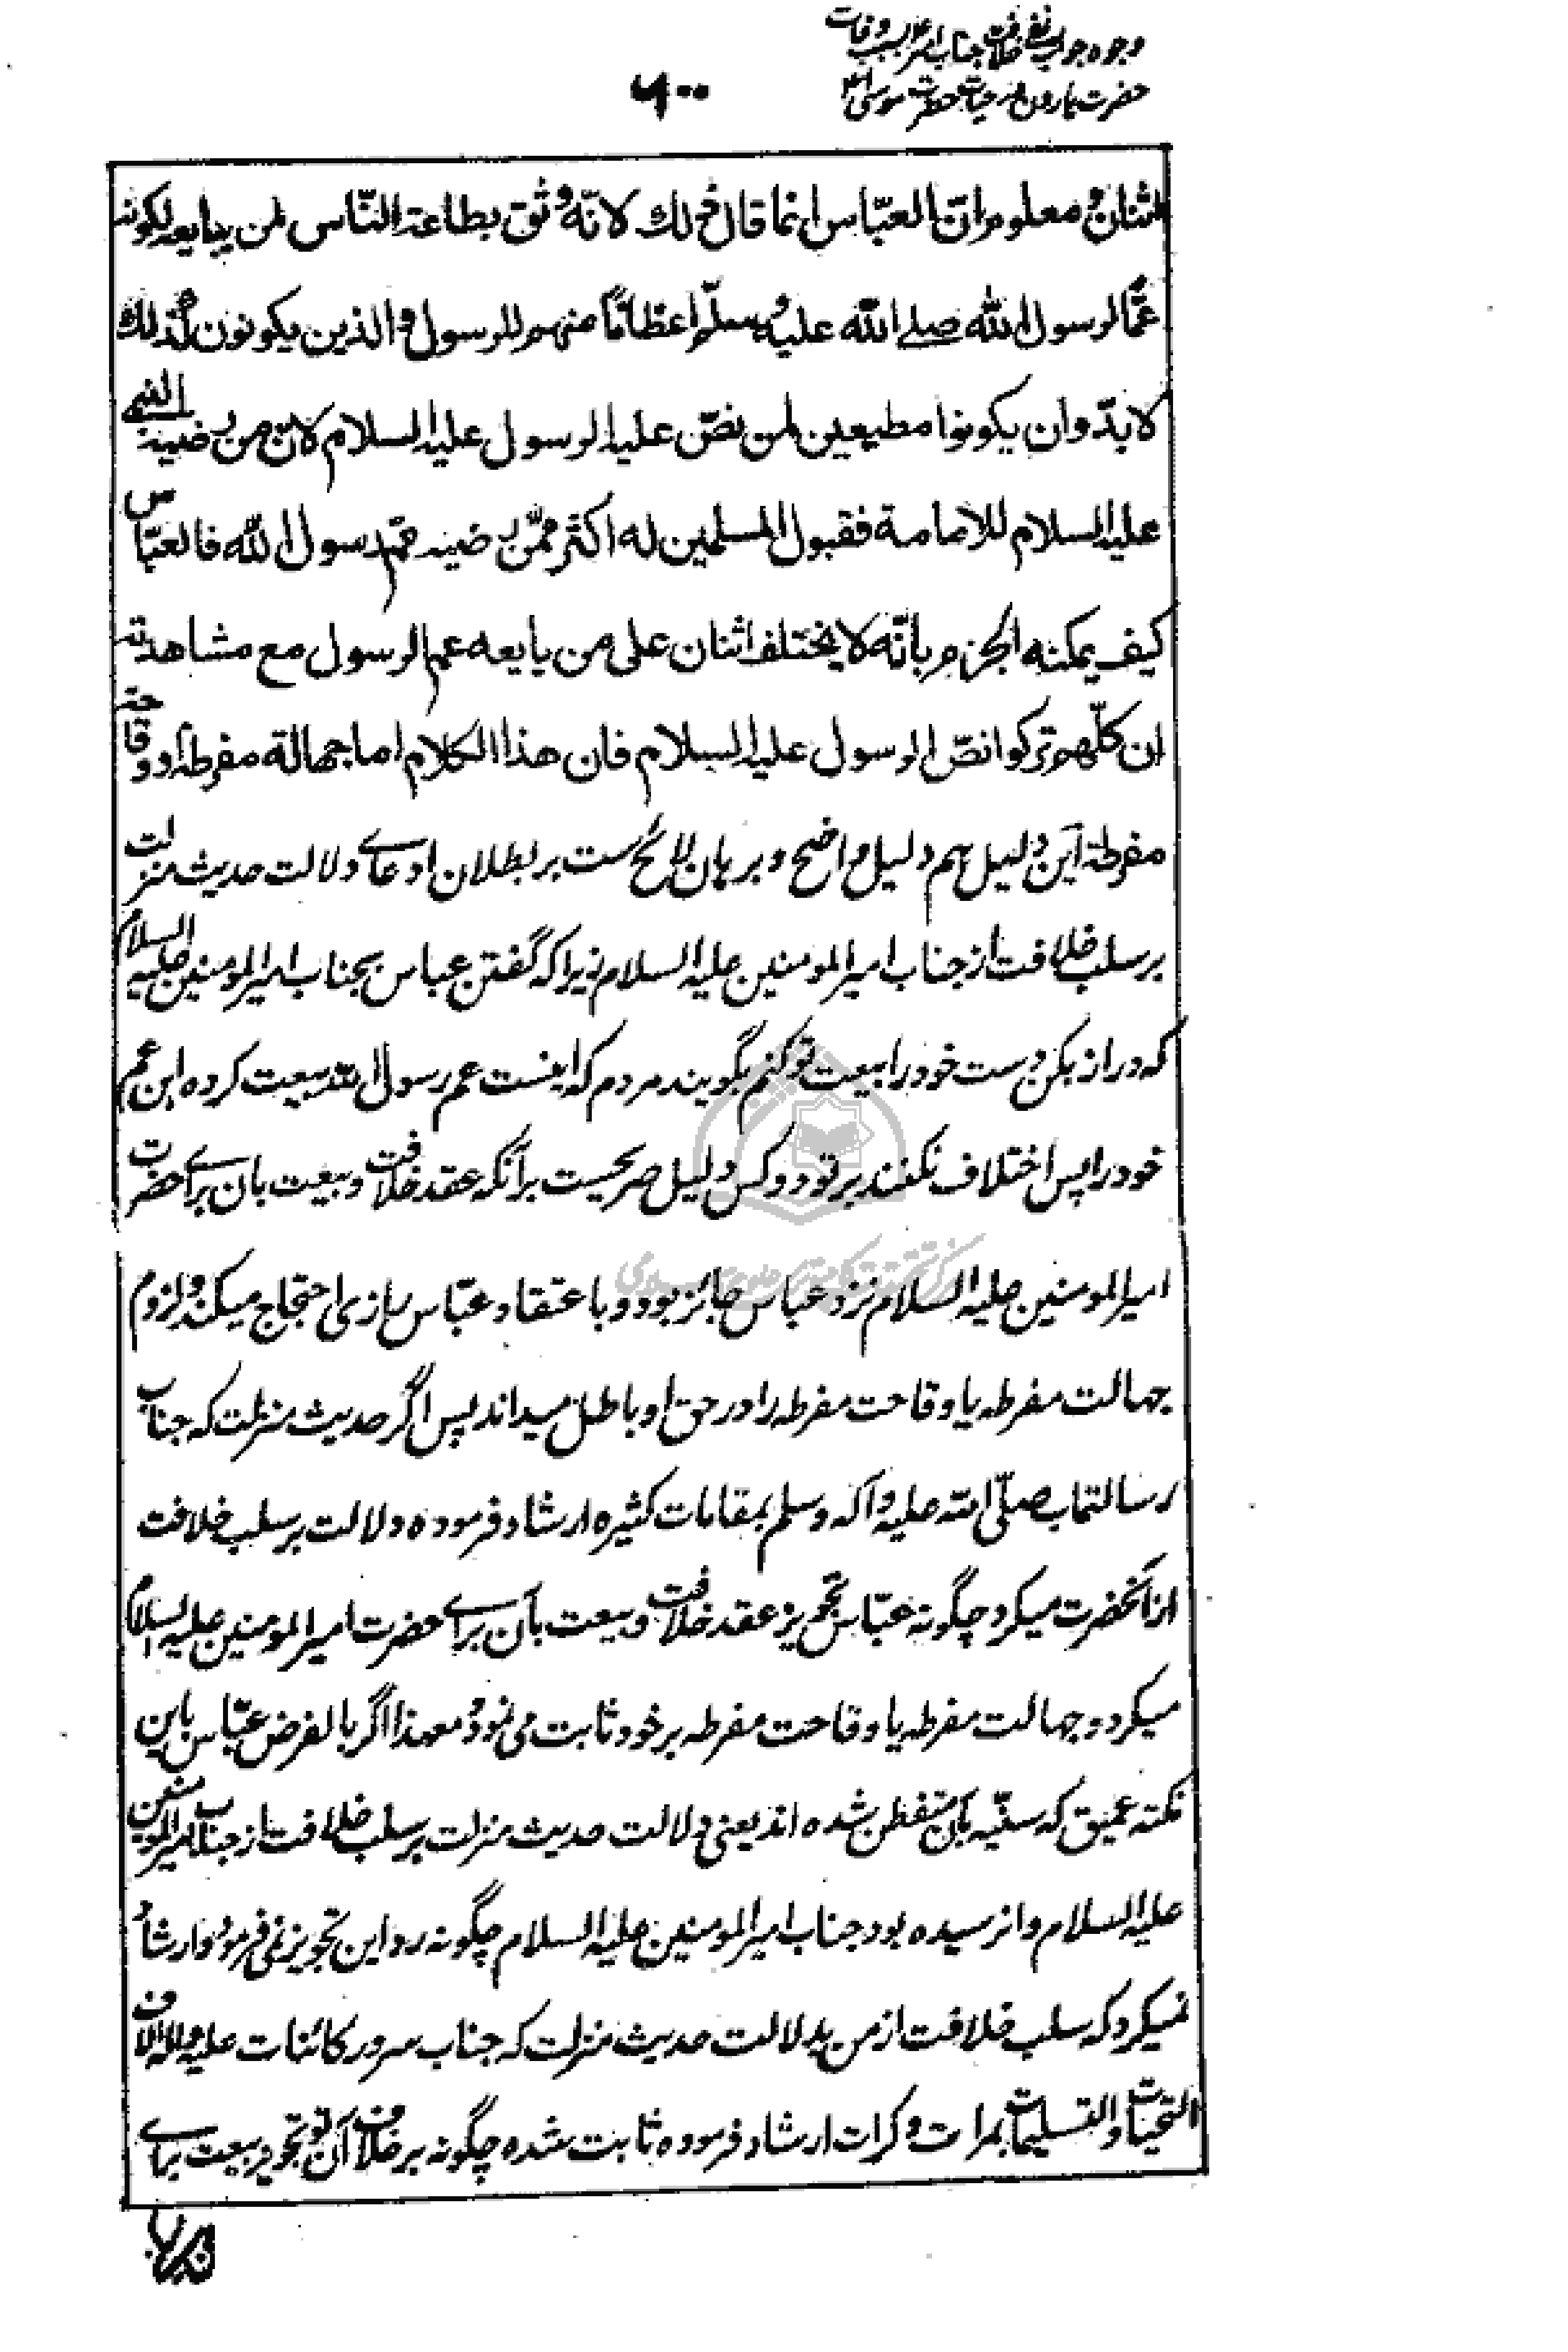 وجوه جواب نفی خلافت جناب امیر ع بسبب وفات
حضرت هارون در حیات حضرت موسی ع
۶۰۰
اثنان و معلوم ان العبّاس انما قال ذلك لانّه وثق بطاعة النّاس لمن يبايعه لكونه
عمّا لرسول الله صلى الله عليه و سلم اعظامًا منهم للرسول و الذين يكونون كذلك
لا بدّ و ان يكونوا مطيعين لمن نصّ عليه الرسول عليه السلام لان من رضيه النبي
عليه السلام للامامة فقبول المسلمين له اكثر ممّن رضيه عمّ رسول الله فالعبّاس
كيف يمكنه الجزم بانّه لا يختلف اثنان على من بايعه عم الرسول مع مشاهدته
ان كلّهم تركوا نصّ الرسول عليه السلام فان هذا الكلام اما جهالة مفرطة او وقاحة
مفرطة این دلیل هم دلیل واضح و برهان لائح ست بر بطلان ادعای دلالت حدیث منزلت
بر سلب خلافت از جناب امیرالمومنین علیه السلام زیرا که گفتن عباس بجناب امیرالمومنین علیه السلام
که دراز بکن دست خود را بیعت تو کنم بگویند مردم که اینست عم رسول الله بیعت کرده ابن عم
خود را پس اختلاف نکنند بر تو دو کس دلیل صریحست بر آنکه عقد خلافت و بیعت بان برای حضرت
امیرالمومنین علیه السلام نزد عباس جائز بود و باعتقاد عبّاس رازی احتجاج میکند و لزوم
جهالت مفرطه یا وقاحت مفرطه را در حق او باطل میداند پس اگر حدیث منزلت که جناب
رسالتماب صلّی الله علیه و آله و سلم بمقامات کثیره ارشاد فرموده دلالت بر سلب خلافت
از آنحضرت میکرد چگونه عبّاس تجویز عقد خلافت و بیعت بآن برای حضرت امیرالمومنین علیه السلام
میکرد و جهالت مفرطه یا وقاحت مفرطه بر خود ثابت می نمود و معهذا اگر بالفرض عبّاس باین
نکته عمیق که سنّیه بآن متفطن شده اند یعنی دلالت حدیث منزلت بر سلب خلافت از جناب امیرالمومنین
علیه السلام وا نرسیده بود جناب امیرالمومنین علیه السلام چگونه رد این تجویز نمی فرمود و ارشاد
نمیکرد که سلب خلافت از من بدلالت حدیث منزلت که جناب سرور کائنات علیه و آله آلاف
التحیات و التسلیمات بمرات و کرات ارشاد فرموده ثابت شده چگونه بر خلاف آن تو تجویز بیعت برای